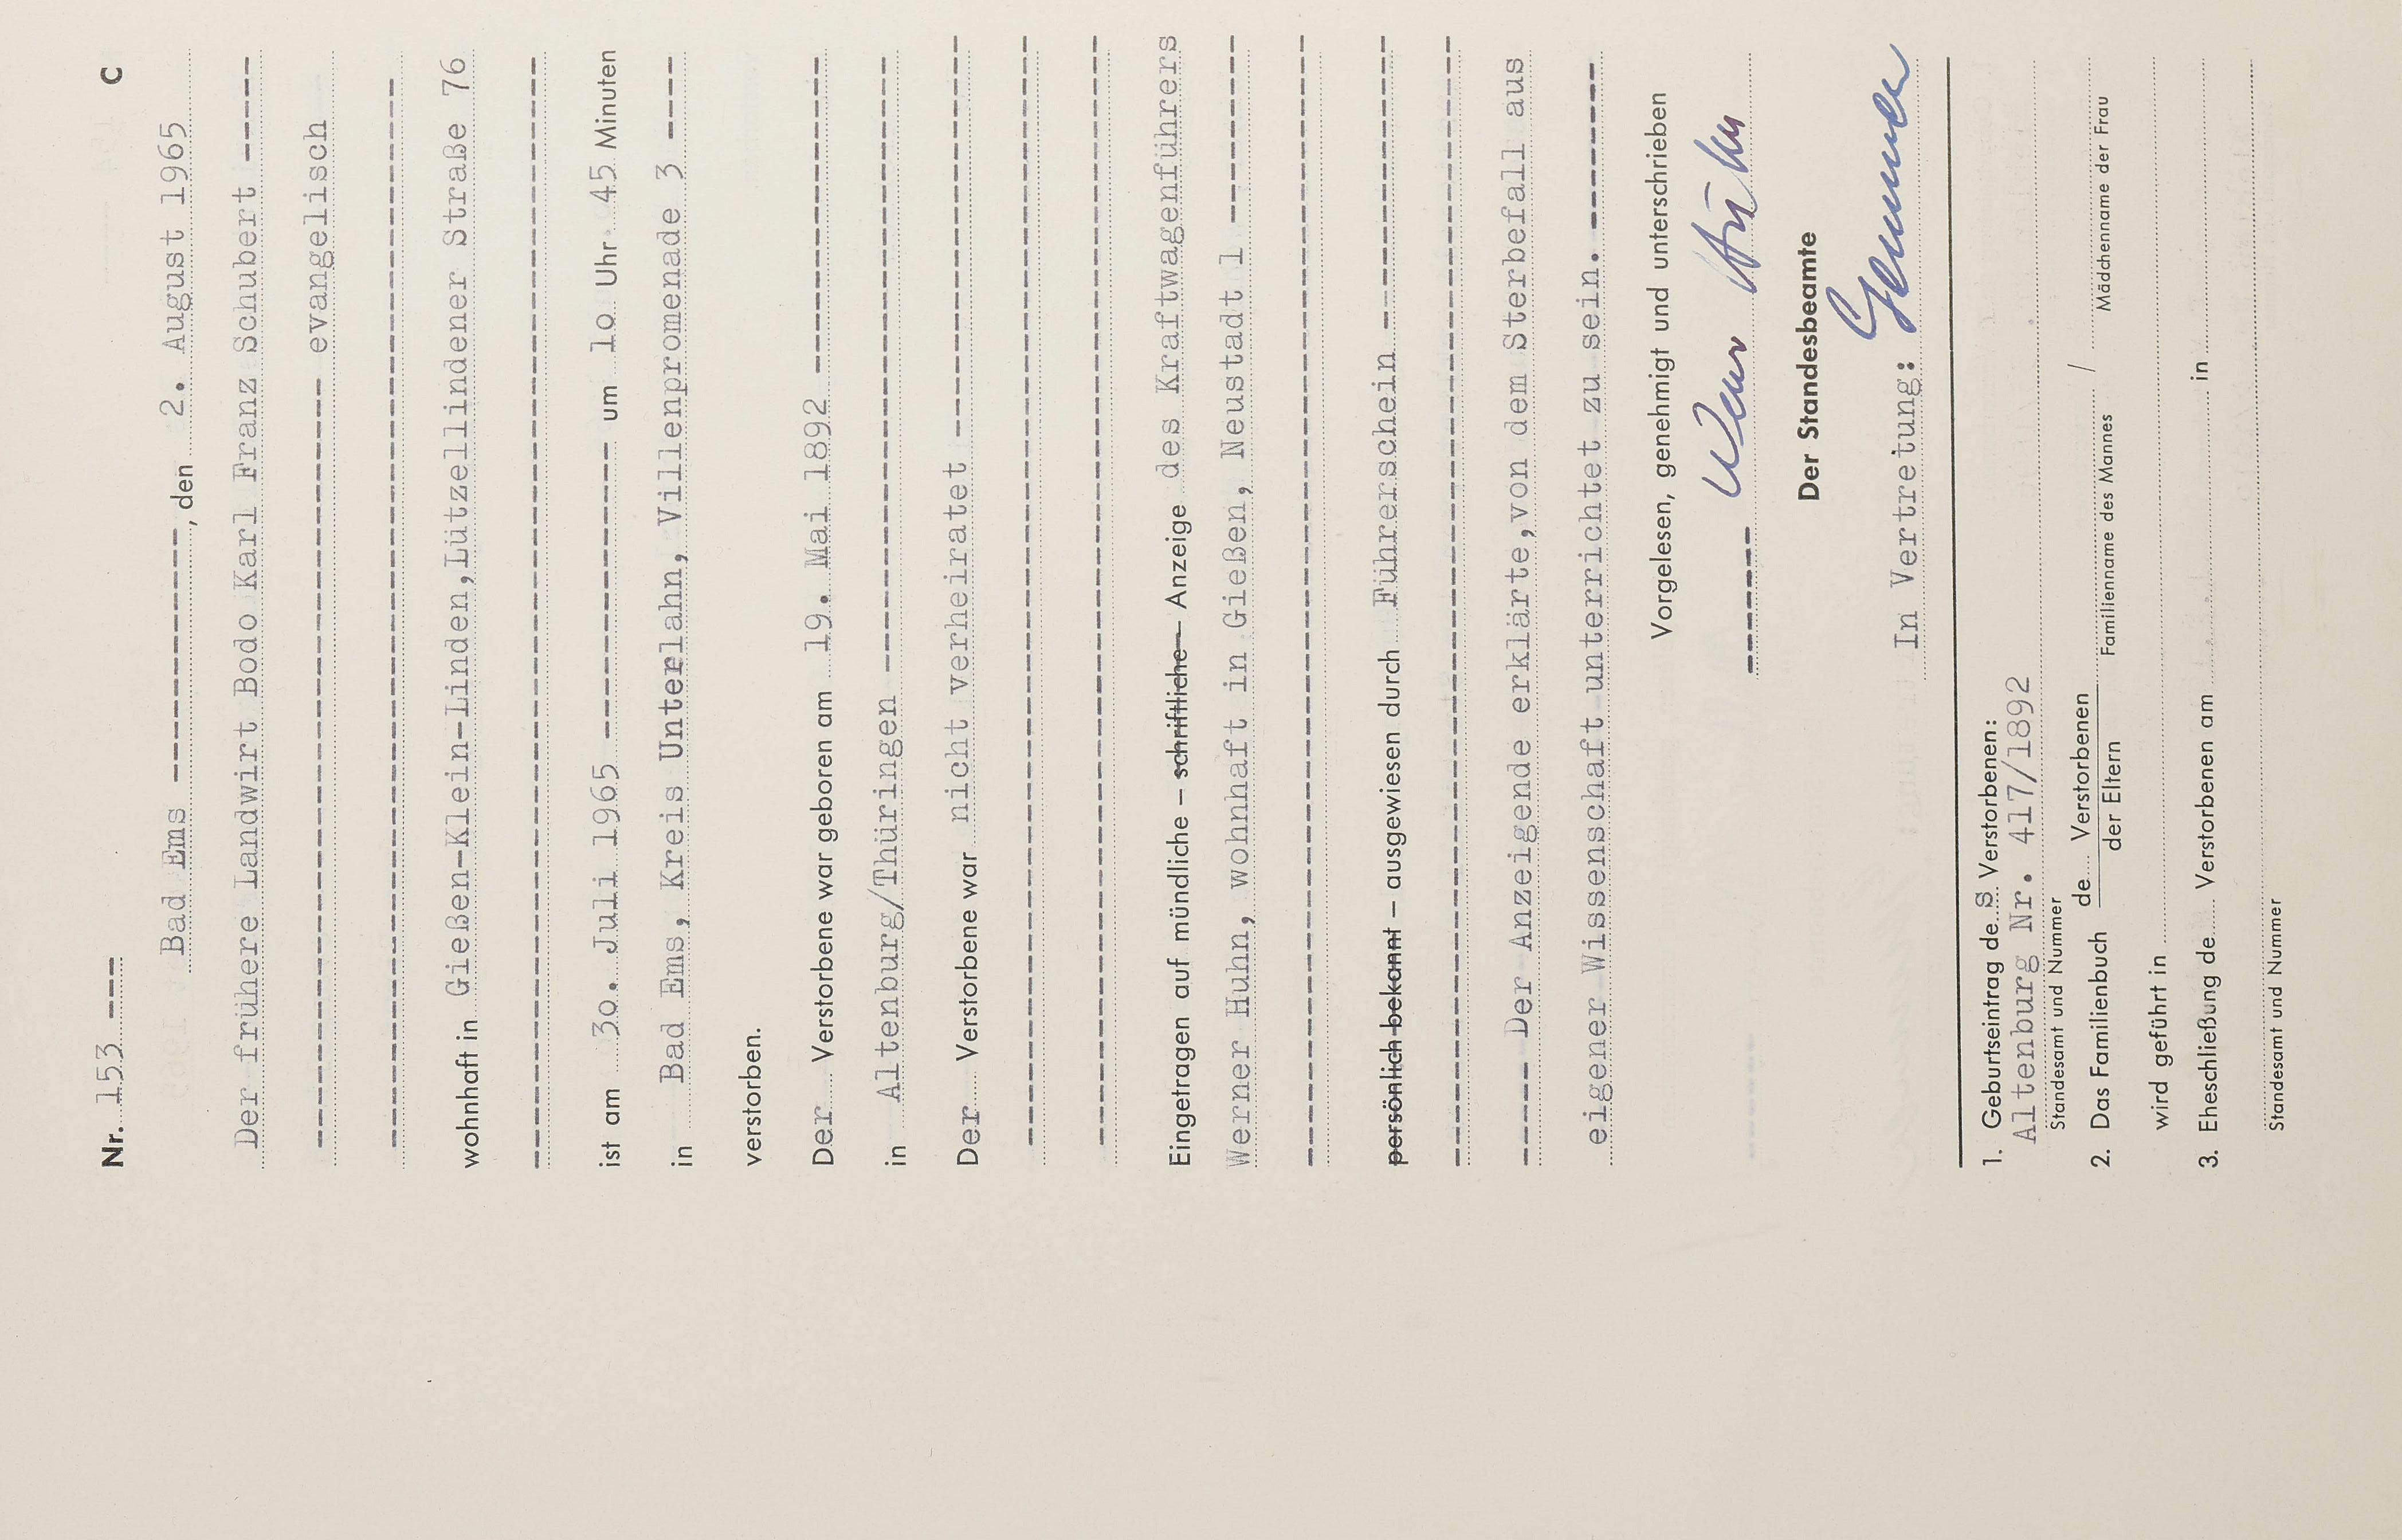 Nr. 153 ---- C
Bad Ems -----------, den 2. August 1965
Der frühere Landwirt Bodo Karl Franz Schubert -----
------------ evangelisch
wohnhaft in Gießen-Klein-Linden,Lützellindener Straße 76
ist am 3o. Juli 1965 ------------- um 1o Uhr 45 Minuten
in Bad Ems, Kreis Unterlahn, Villenpromenade 3 ----
verstorben.
Der Verstorbene war geboren am 19. Mai 1892 --------------
in Altenburg/Thüringen
Der Verstorbene war nicht verheiratet
Eingetragen auf mündliche – schriftliche – Anzeige des Kraftwagenführers
Werner Huhn, wohnhaft in Gießen, Neustadt 1 --------
persönlich bekannt – ausgewiesen durch Führerschein
----- Der Anzeigende erklärte,von dem Sterbefall aus
eigener Wissenschaft unterrichtet zu sein. --------
Vorgelesen, genehmigt und unterschrieben
------- Werner Huhn
Der Standesbeamte
In Vertretung:
1. Geburtseintrag des Verstorbenen:
Altenburg Nr. 417/1892
Standesamt und Nummer
2. Das Familienbuch de Verstorbenen / 
der Eltern Familienname des Mannes Mädchenname der Frau
wird geführt in
3. Eheschließung de Verstorbenen am in
Standesamt und Nummer